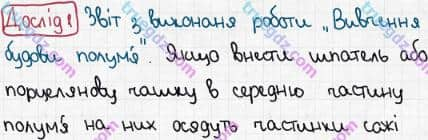 Дослід 1 Звіт з виконаня роботи „Вивчення
будови полум'я". Якщо внести шпатель або
порцелянову чашку в середню частину
полум'я на них осядуть частинки сажі